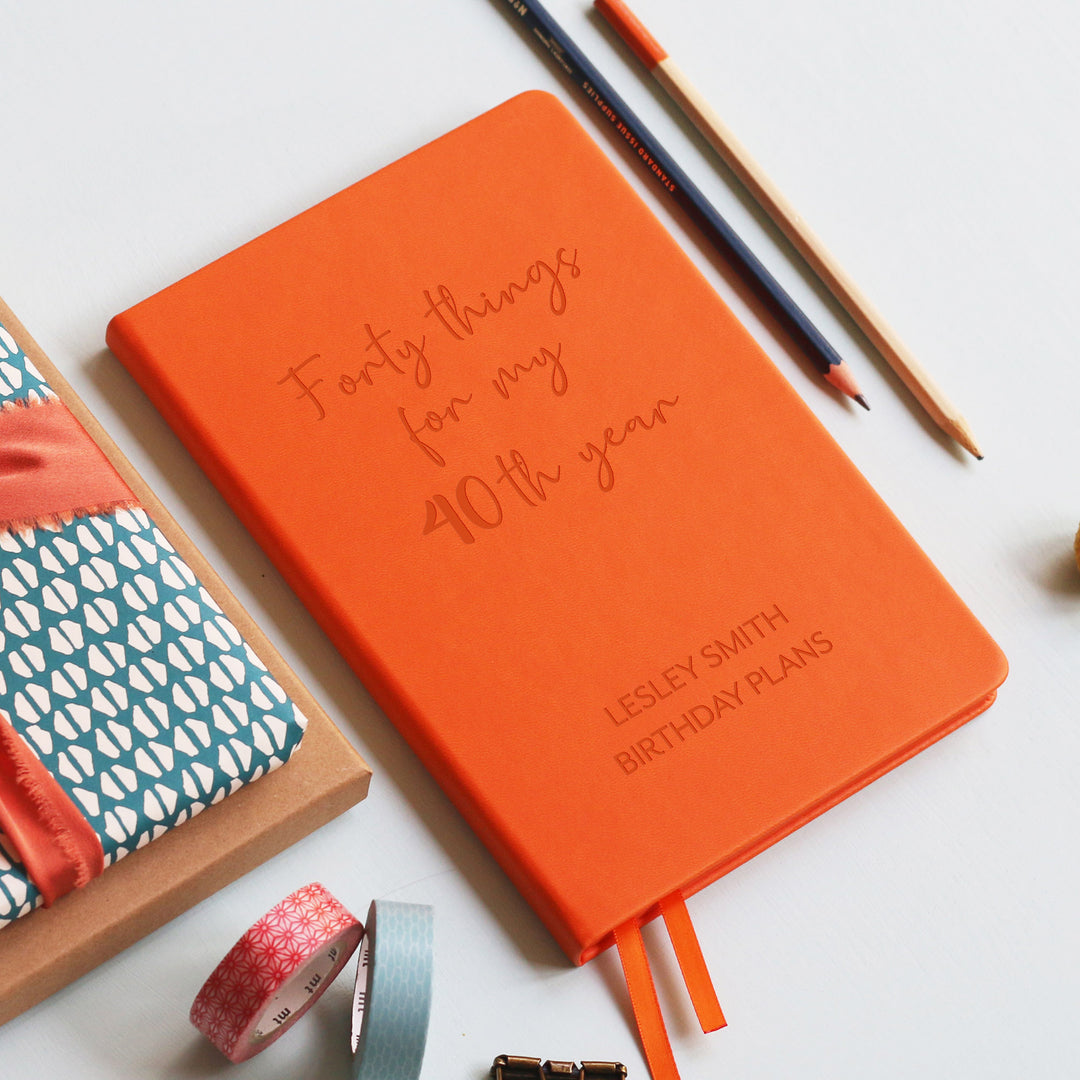 Forty things
for my
40th year
LESLEY SMITH
BIRTHDAY PLANS
STANDARD ISSUE SUPPLIES
Nº
mt
mt
mt